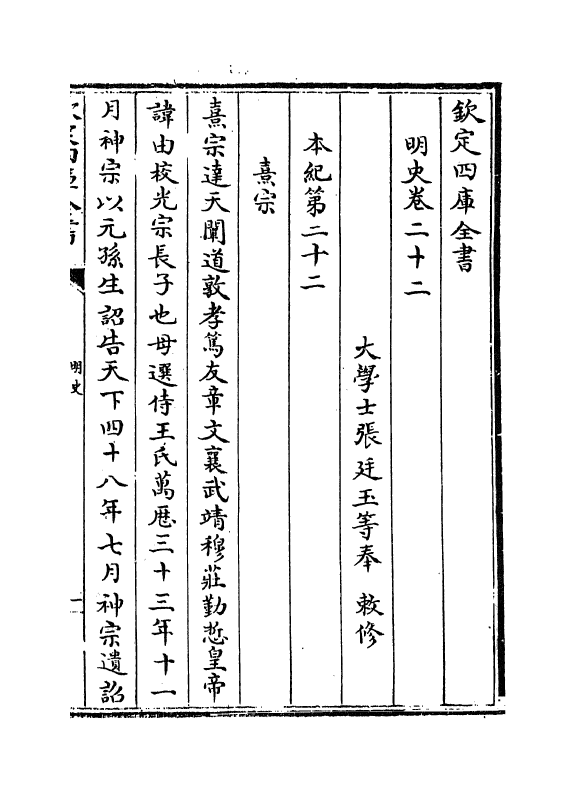 欽定四庫全書
明史卷二十二
大學士張廷玉等奉 敕修
本紀第二十二
熹宗
熹宗達天闡道敦孝篤友章文襄武靖穆莊勤悊皇帝
諱由校光宗長子也母選侍王氏萬厯三十三年十一
月神宗以元孫生詔告天下四十八年七月神宗遺詔
欽定四庫全書
明史
一